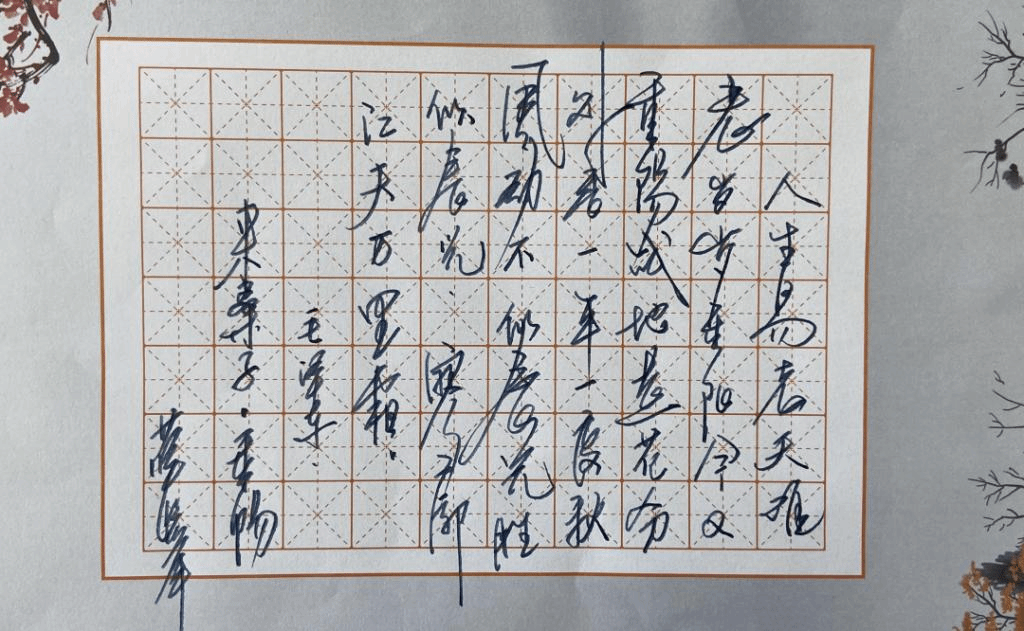 人生易老天难
老岁岁重阳今又
重陽战地黄花分
外香一年一度秋
風劲不似春光胜
似春光.寥廓
江天万里霜.
毛泽东.
采桑子·重陽